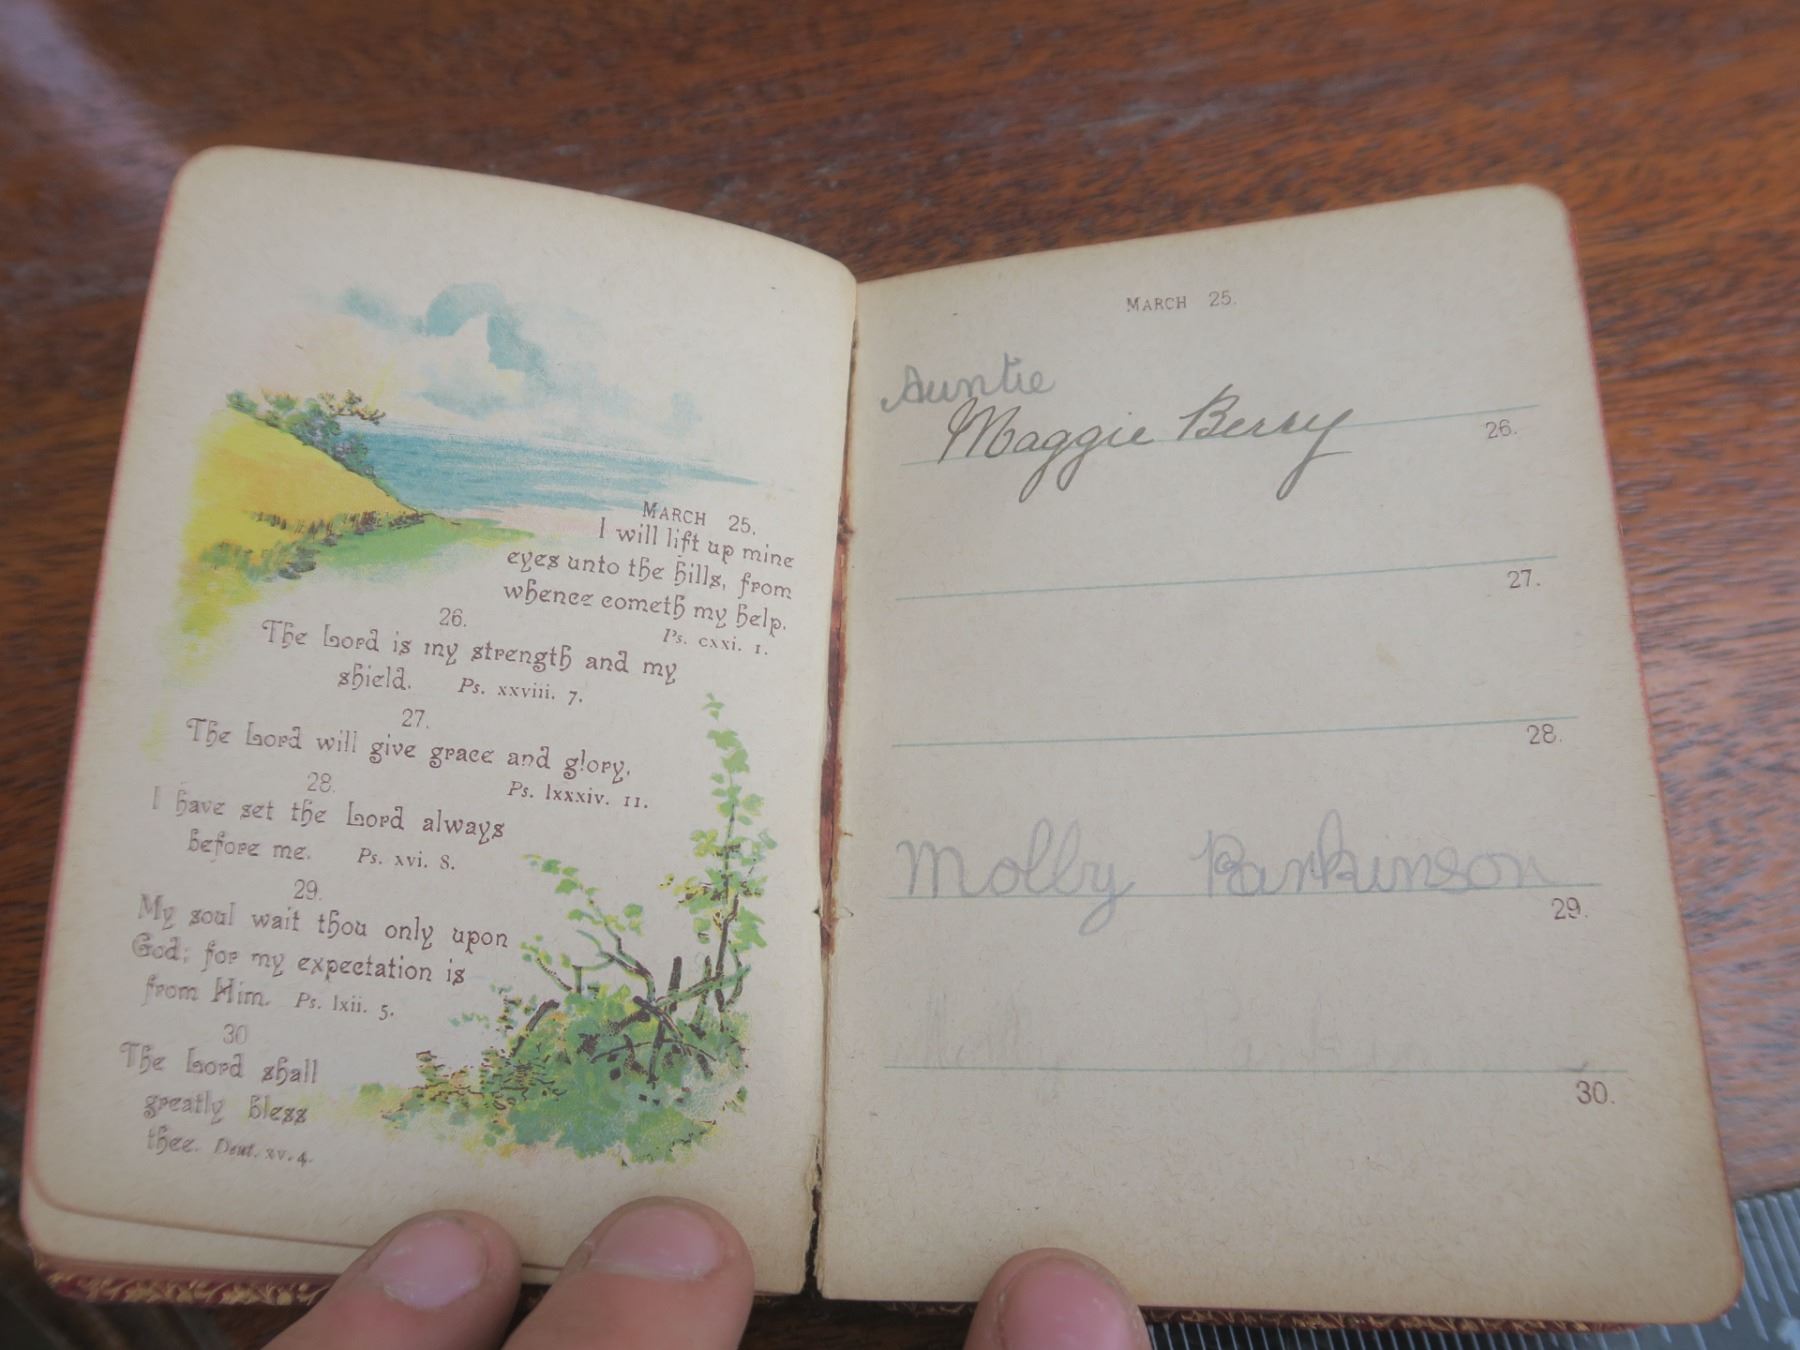 MARCH 25.
I will lift up mine
eyes unto the hills, from
whence cometh my help.
Ps. cxxi. 1.
26.
The Lord is my strength and my
shield. Ps. xxviii. 7.
27.
The Lord will give grace and glory.
Ps. lxxxiv. 11.
28.
I have set the Lord always
before me. Ps. xvi. 8.
29.
My soul wait thou only upon
God; for my expectation is
from Him. Ps. lxii. 5.
30
The Lord shall
greatly bless
thee. Deut. xv. 4.
MARCH 25.
Auntie
Maggie Berry
26.
27.
28.
Molly Parkinson
29.
Molly Parkinson
30.